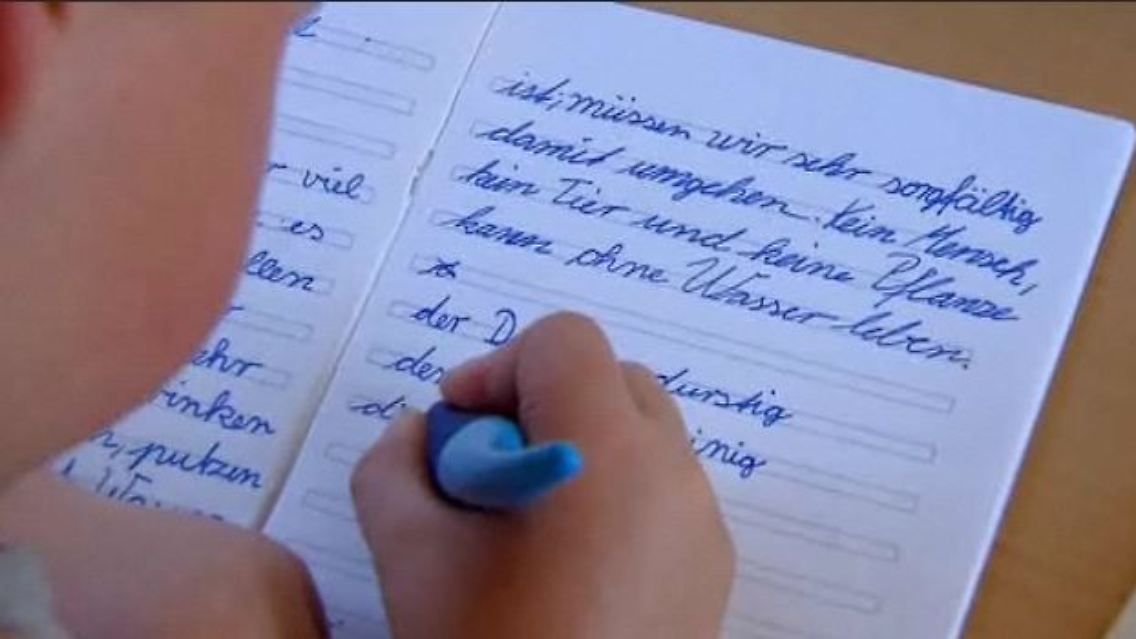 r viel
es
llen
r
ehr
rinken
n, putzen
ist, müssen wir sehr sorgfältig
damit umgehen. Kein Mensch,
kein Tier und keine Pflanze
kann ohne Wasser leben.
der D
der durstig
di inig